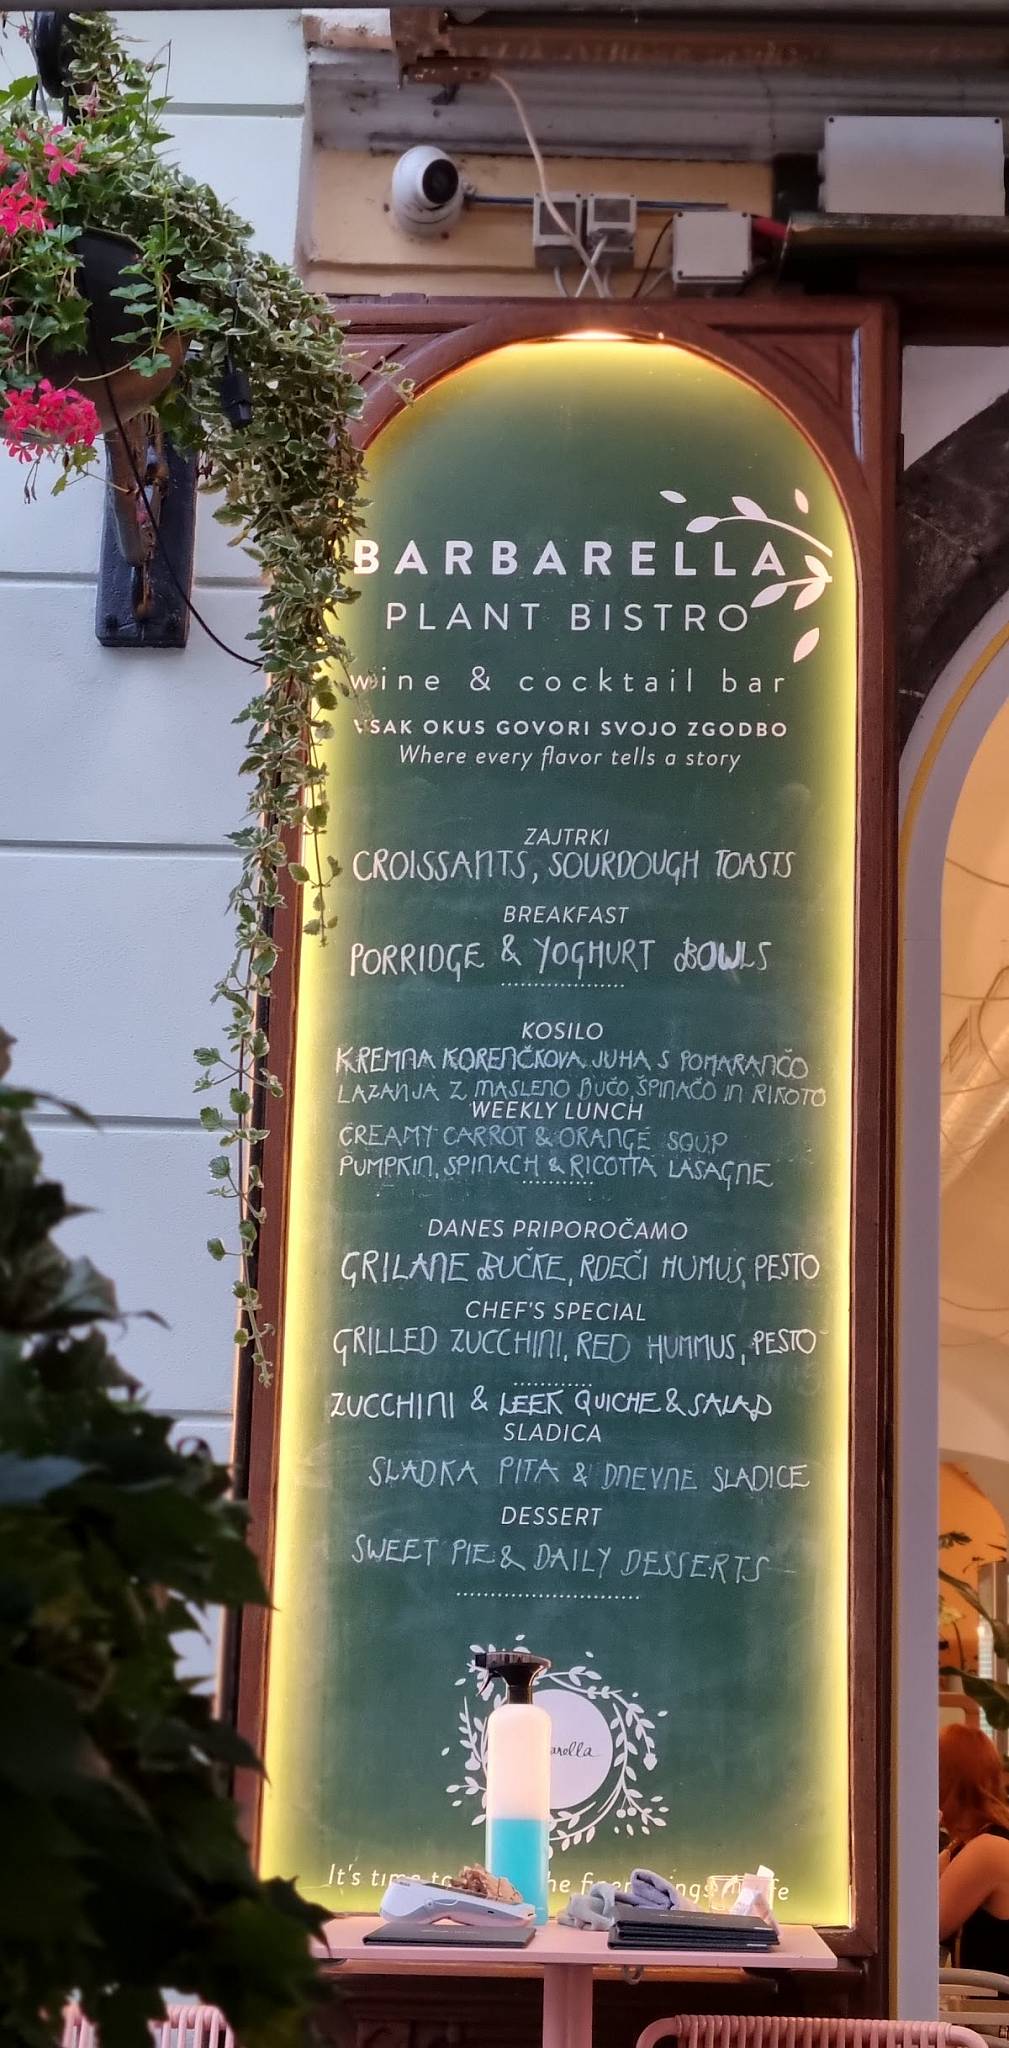 BARBARELLA
PLANT BISTRO
wine & cocktail bar
VSAK OKUS GOVORI SVOJO ZGODBO
Where every flavor tells a story
ZAJTRKI
CROISSANTS, SOURDOUGH TOASTS
BREAKFAST
PORRIDGE & YOGHURT BOWLS
KOSILO
KREMNA KORENČKOVA JUHA S POMARANČO
LAZANJA Z MASLENO BUČO, ŠPINAČO IN RIKOTO
WEEKLY LUNCH
CREAMY CARROT & ORANGE SOUP
PUMPKIN, SPINACH & RICOTTA LASAGNE
DANES PRIPOROČAMO
GRILANE BUČKE, RDEČI HUMUS, PESTO
CHEF'S SPECIAL
GRILLED ZUCCHINI, RED HUMMUS, PESTO
ZUCCHINI & LEEK QUICHE & SALAD
SLADICA
SLADKA PITA & DNEVNE SLADICE
DESSERT
SWEET PIE & DAILY DESSERTS
It's time to